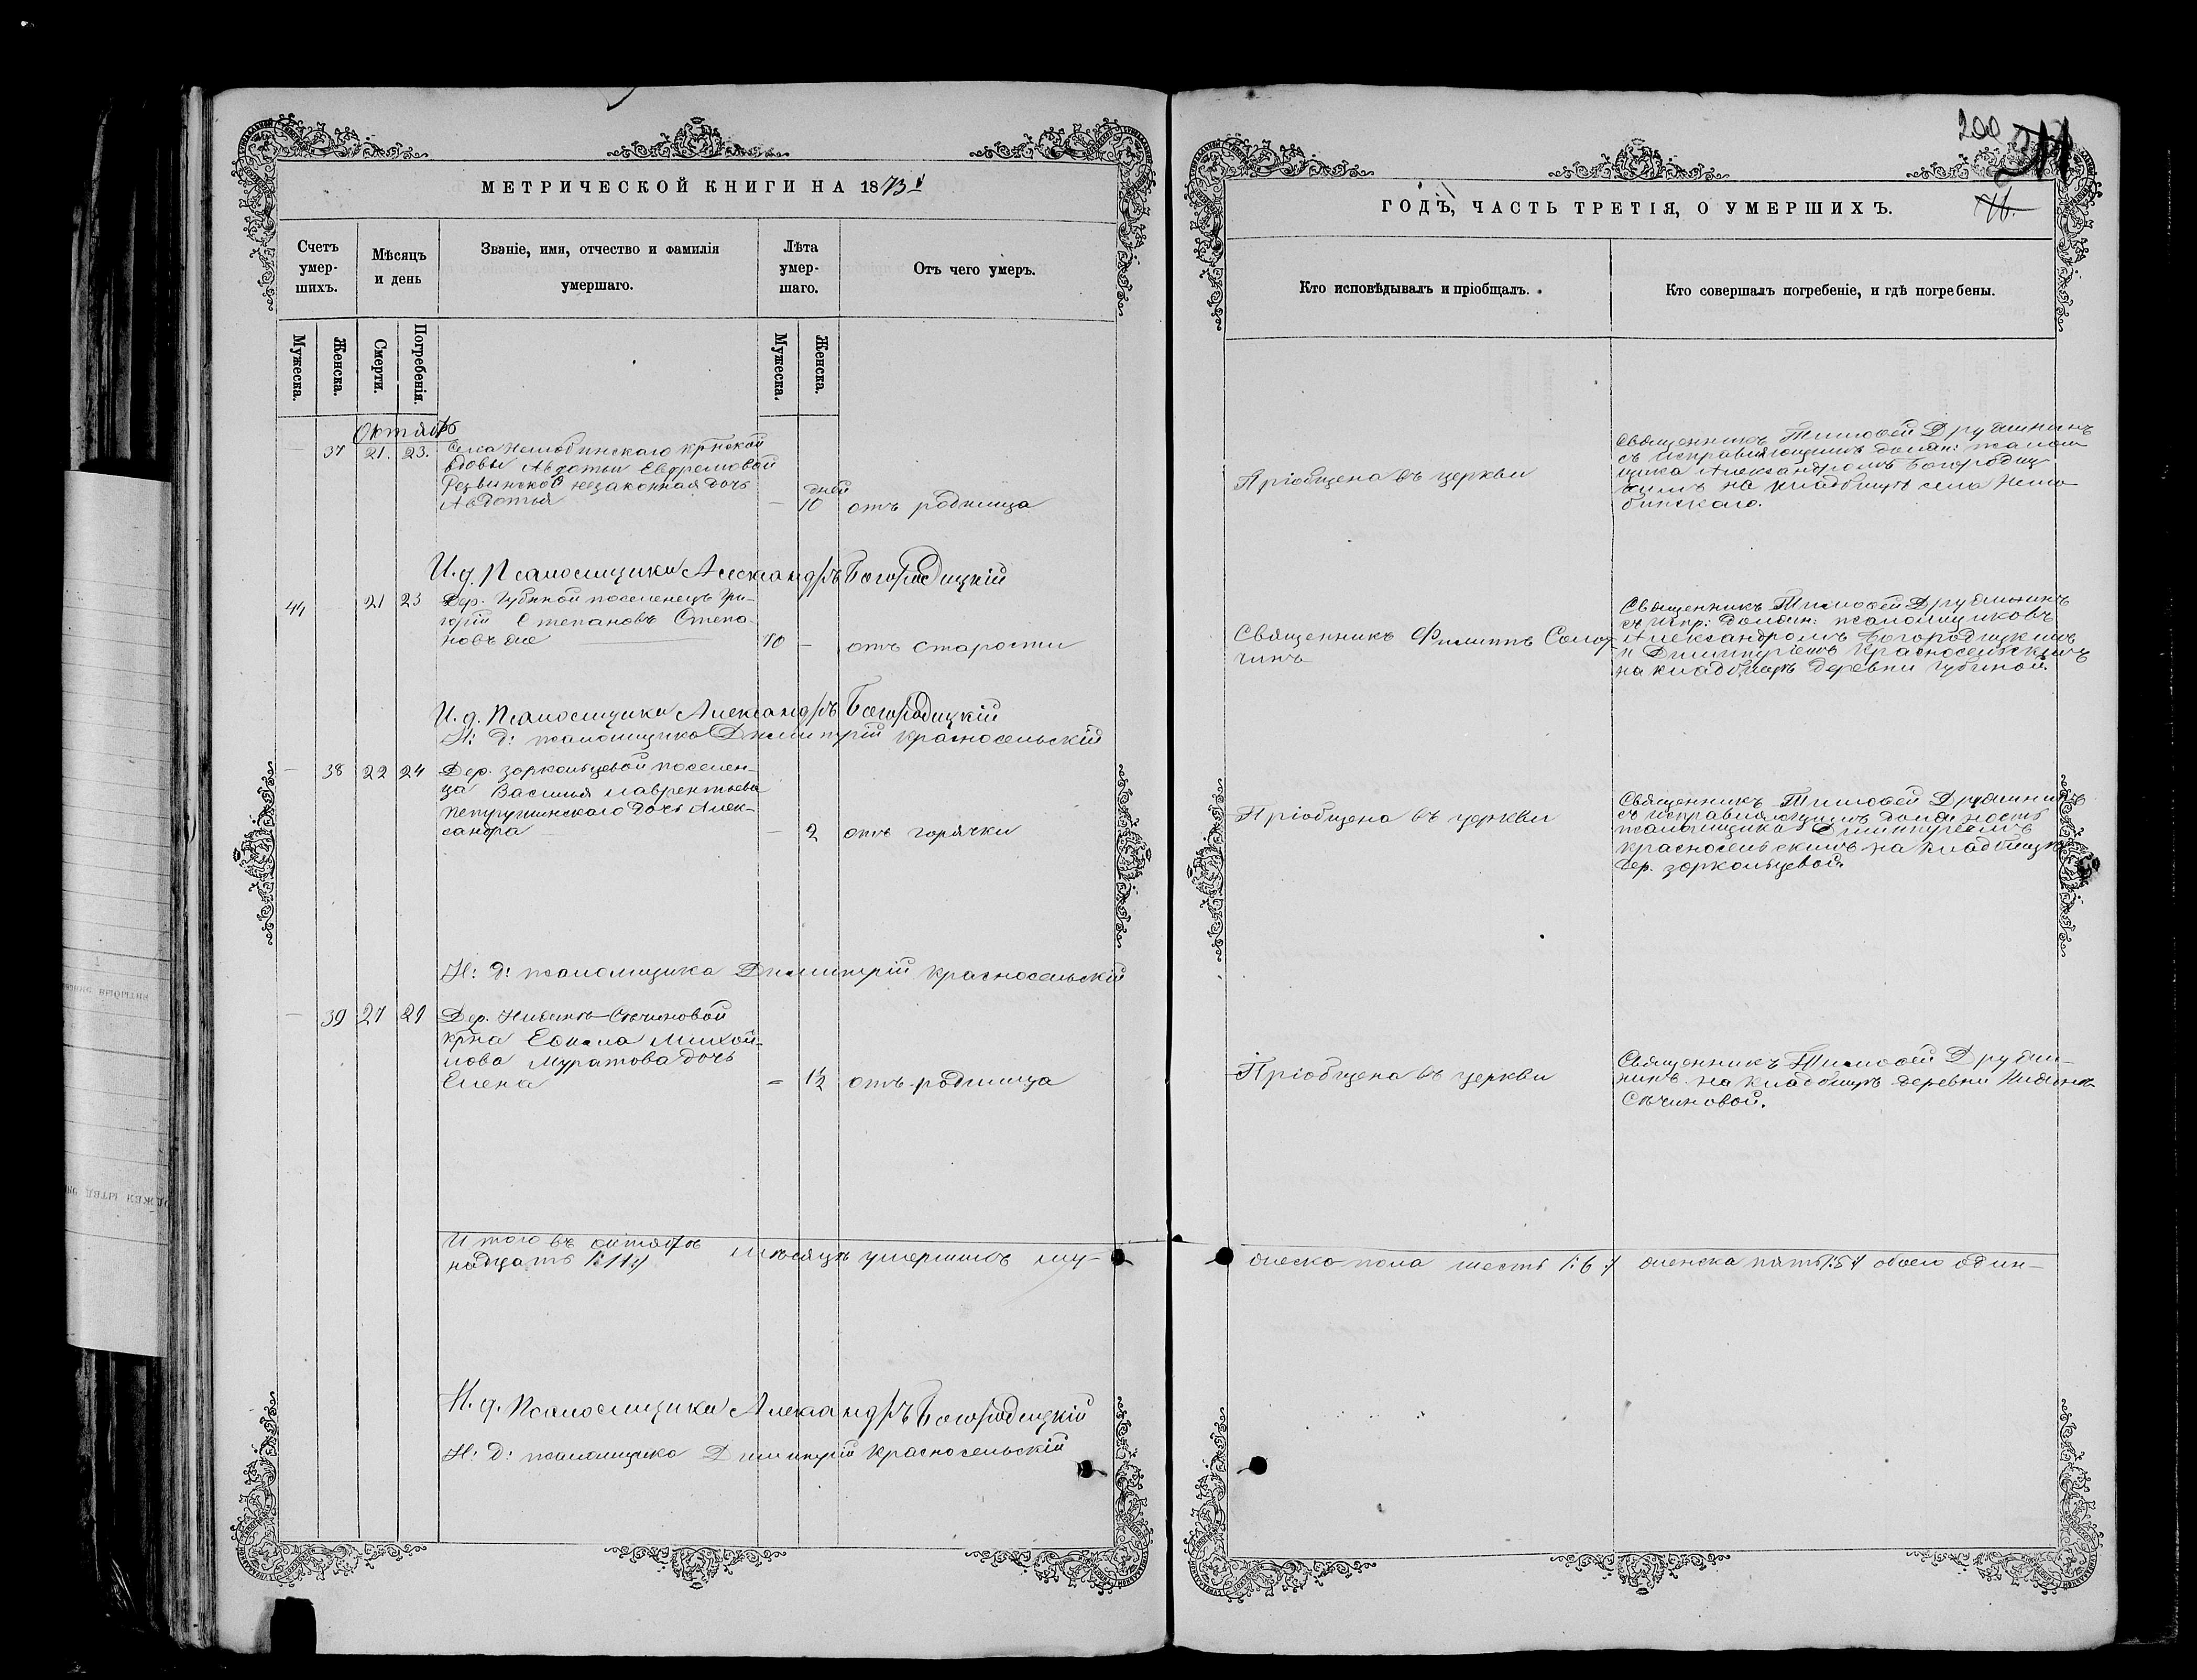 200
МЕТРИЧЕСКОЙ КНИГИ НА 1873й
ГОДЪ, ЧАСТЬ ТРЕТІЯ, О УМЕРШИХЪ.
Счетъ умер-шихъ.
Мѣсяцъ и день
Званіе, имя, отчество и фамилія
умершаго.
Лѣта умер-шаго.
Отъ чего умеръ.
Кто исповѣдывалъ и пріобщалъ.
Кто совершалъ погребеніе, и гдѣ погребены.
Мужеска.
Женска.
Смерти.
Погребенія.
Мужеска.
Женска.
Октябрь
37 21. 23.
Села Нелюбинскаго кр̃нской
вдовы Авдотьи Евфремовой
Резвинской незаконная дочь
Авдотья
дней
— 10 отъ родимца
Пріобщена въ церкви
Священникъ Тимоѳей Дружининъ
съ исправляющимъ должн: псалом
щика Александромъ Богородиц
кимъ на кладбищѣ села Нелю-
бинскаго.
И. д. Псаломщика Александръ Богородицкій
44 21 23
Дер. Губиной поселенецъ Гри-
горій Степановъ Степа-
новъ же
70 — отъ старости
Священникъ Филиппъ Сосу-
нинъ
Священникъ Тимоѳей Дружининъ
съ испр: должн: псаломщиковъ
Александромъ Богородицкимъ
и Димитріемъ Красносельскимъ
на кладбищѣ деревни Губиной.
И. д. Псаломщика Александръ Богородицкій
И: д: псаломщика Димитрій Красносельскій
— 38 22 24
Дер. Зоркольцевой поселен-
ца Василья Лаврентьева
дочь Алек-
сандра
— 2 отъ горячки
Пріобщена въ церкви
Священникъ Тимоѳей Дружининъ
съ исправляющимъ должность
псаломщика Димитріемъ
Красносельскимъ на кладбищѣ
дер. Зоркольцевой.
И: д: псаломщика Димитрій Красносельскій
— 39 27 29
Дер. Нижне-Сѣчиновой
кр̃на Евсима Михай-
лова Муратова дочь
Елена
— 1½ отъ родимца
Пріобщена въ церкви
Священникъ Тимоѳей Дружи-
нинъ на кладбищѣ деревни Нижне-
Сѣчиновой.
Итого въ октябрѣ мѣсяцѣ умершихъ му-
жеска пола шесть /:6:/ женска пять /:5:/ обоего один-
надцать /:11:/
И. д. Псаломщика Александръ Богородицкій
И: д: псаломщика Димитрій Красносельскій